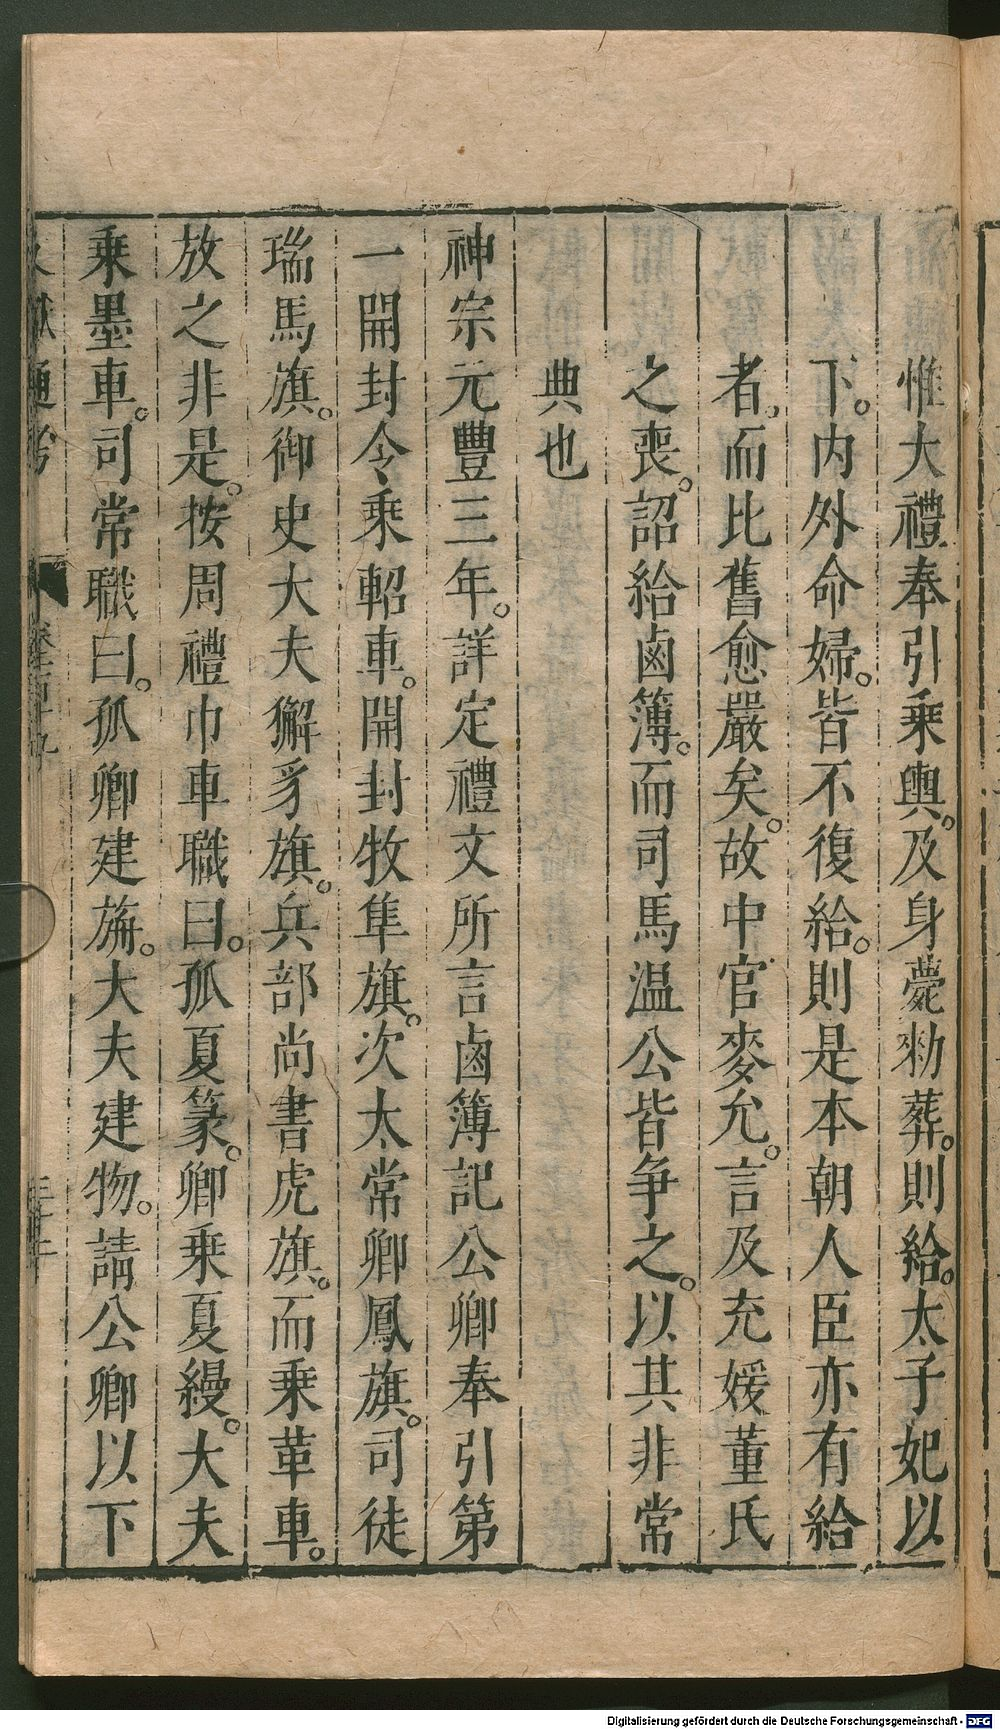 惟大禮奉引乗輿。及身薨勑葬。則給。太子妃以
下。内外命婦。皆不復給。則是本朝人臣亦有給
者。而比舊愈嚴矣。故中官麥允。言及充媛董氏
之喪。詔給鹵簿。而司馬温公皆争之。以其非常
典也
神宗元豐三年。詳定禮文所言鹵簿記公卿奉引第
一開封令乗軺車。開封牧隼旗。次太常卿鳳旗。司徒
瑞馬旗。御史大夫獬豸旗。兵部尚書虎旗。而乗革車。
放之非是。按周禮巾車職曰。孤夏篆。卿乗夏縵。大夫
乗墨車。司常職曰。孤卿建旃。大夫建物。請公卿以下
Digitalisierung gefördert durch die Deutsche Forschungsgemeinschaft - DFG